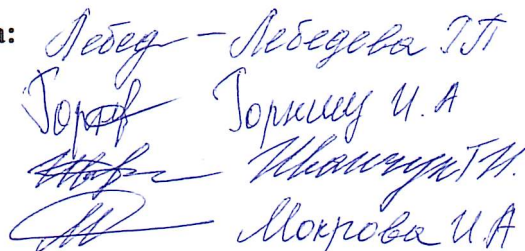 а:
Лебед – Лебедева Г П
Горкиц И. А
Иванчук Г И.
Мокрова И. А